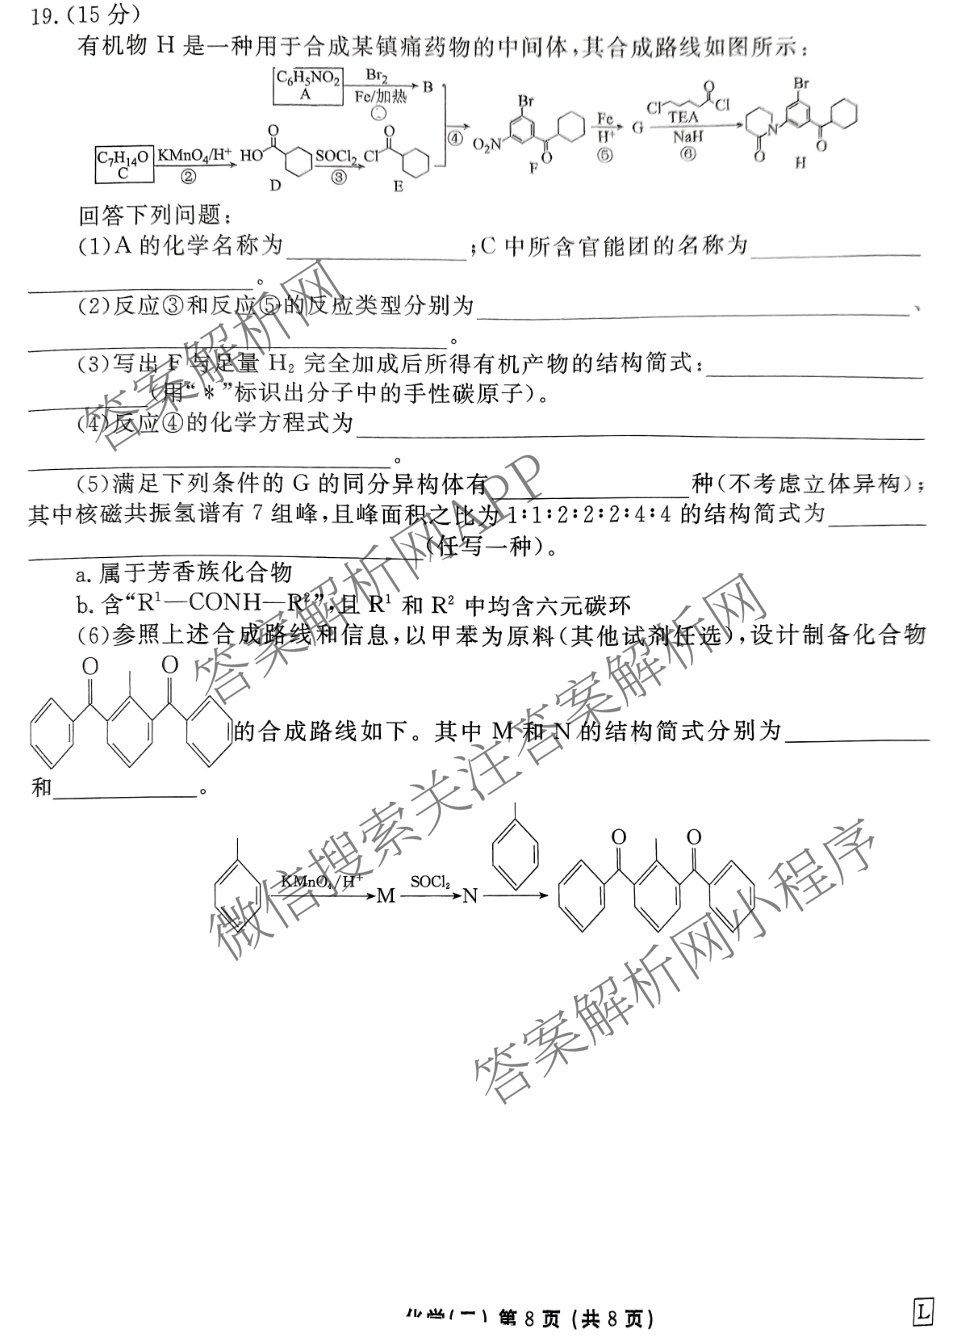 19.(15分)
有机物 H 是一种用于合成某镇痛药物的中间体,其合成路线如图所示:
C6H5NO2
A
Br2
Fe/加热
①
B
C7H14O
C
KMnO4/H+
②
HO
O
D
SOCl2
③
Cl
O
E
④
Br
O2N
O
F
Fe
H+
⑤
G
Cl
O
Cl
TEA
NaH
⑥
Br
N
O
O
H
回答下列问题:
(1)A 的化学名称为;C 中所含官能团的名称为
。
(2)反应③和反应⑤的反应类型分别为、
。
(3)写出 F 与足量 H2 完全加成后所得有机产物的结构简式:
(用“*”标识出分子中的手性碳原子)。
(4)反应④的化学方程式为
。
(5)满足下列条件的 G 的同分异构体有种(不考虑立体异构);
其中核磁共振氢谱有 7 组峰,且峰面积之比为 1∶1∶2∶2∶2∶4∶4 的结构简式为
(任写一种)。
a. 属于芳香族化合物
b. 含“R1—CONH—R2”,且 R1 和 R2 中均含六元碳环
(6)参照上述合成路线和信息,以甲苯为原料(其他试剂任选),设计制备化合物
O O
的合成路线如下。其中 M 和 N 的结构简式分别为
和。
KMnO4/H+
M
SOCl2
N
O O
答案解析网
答案解析网APP
微信搜索关注答案解析网
答案解析网小程序
化学(二) 第 8 页 (共 8 页)
L